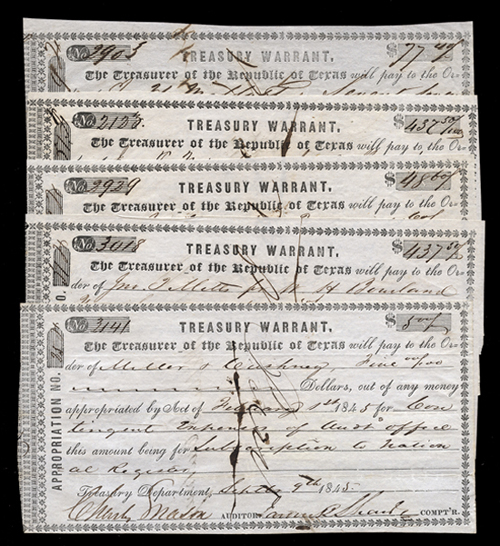 No. 2903 TREASURY WARRANT. $77
The Treasurer of the Republic of Texas will pay to the Or-
No. 2123 TREASURY WARRANT. $437 50/100
The Treasurer of the Republic of Texas will pay to the Or-
No. 2929 TREASURY WARRANT. $48
The Treasurer of the Republic of Texas will pay to the Or-
No. 3018 TREASURY WARRANT. $437 50
The Treasurer of the Republic of Texas will pay to the Or-
der of H
No. 2141 TREASURY WARRANT. $5
The Treasurer of the Republic of Texas will pay to the Or-
der of Miller & Cushney Five
Dollars, out of any money
appropriated by Act of February 1st 1845 for Con
tingent Expenses of Audt office
this amount being for Subscription to Nation
al Register
Treasury Department, Septr 9th 1845.
Charles Mason AUDITOR James B Shaw COMPT'R.
APPROPRIATION NO.